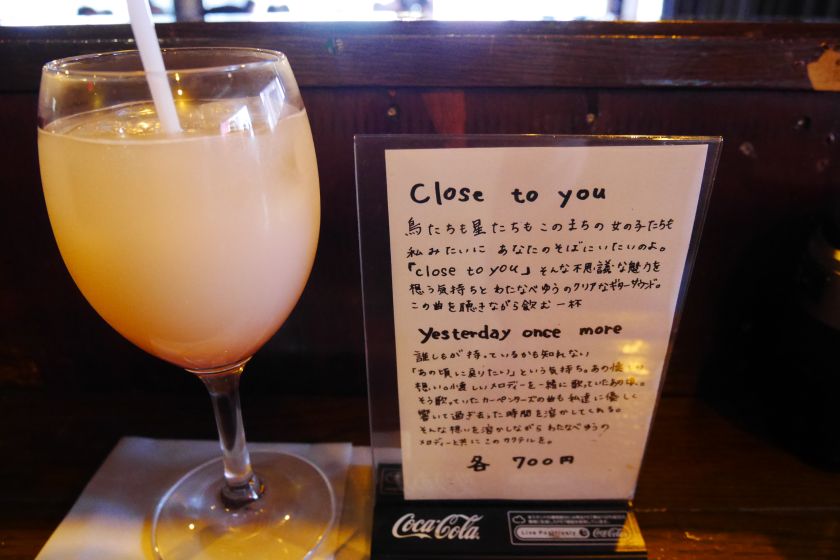 Close to you
鳥たちも星たちもこのまちの女の子たちも
私みたいに あなたのそばにいたいのよ。
「close to you」そんな不思議な魅力を
想う気持ちと わたなべゆうのクリアなギターサウンド。
この曲を聴きながら飲む一杯
Yesterday once more
誰しもが持っているかも知れない
「あの頃に戻りたい」という気持ち。あの
想い。しいメロディーを一緒に歌っていたあの頃。
そう歌っていたカーペンターズの曲も私達に優しく
響いて過ぎ去った時間を溶かしてくれる。
そんな想いを溶かしながら わたなべゆうの
メロディーと共にこのカクテルを。
各 700円
Coca-Cola
Live Positively
Coca-Cola